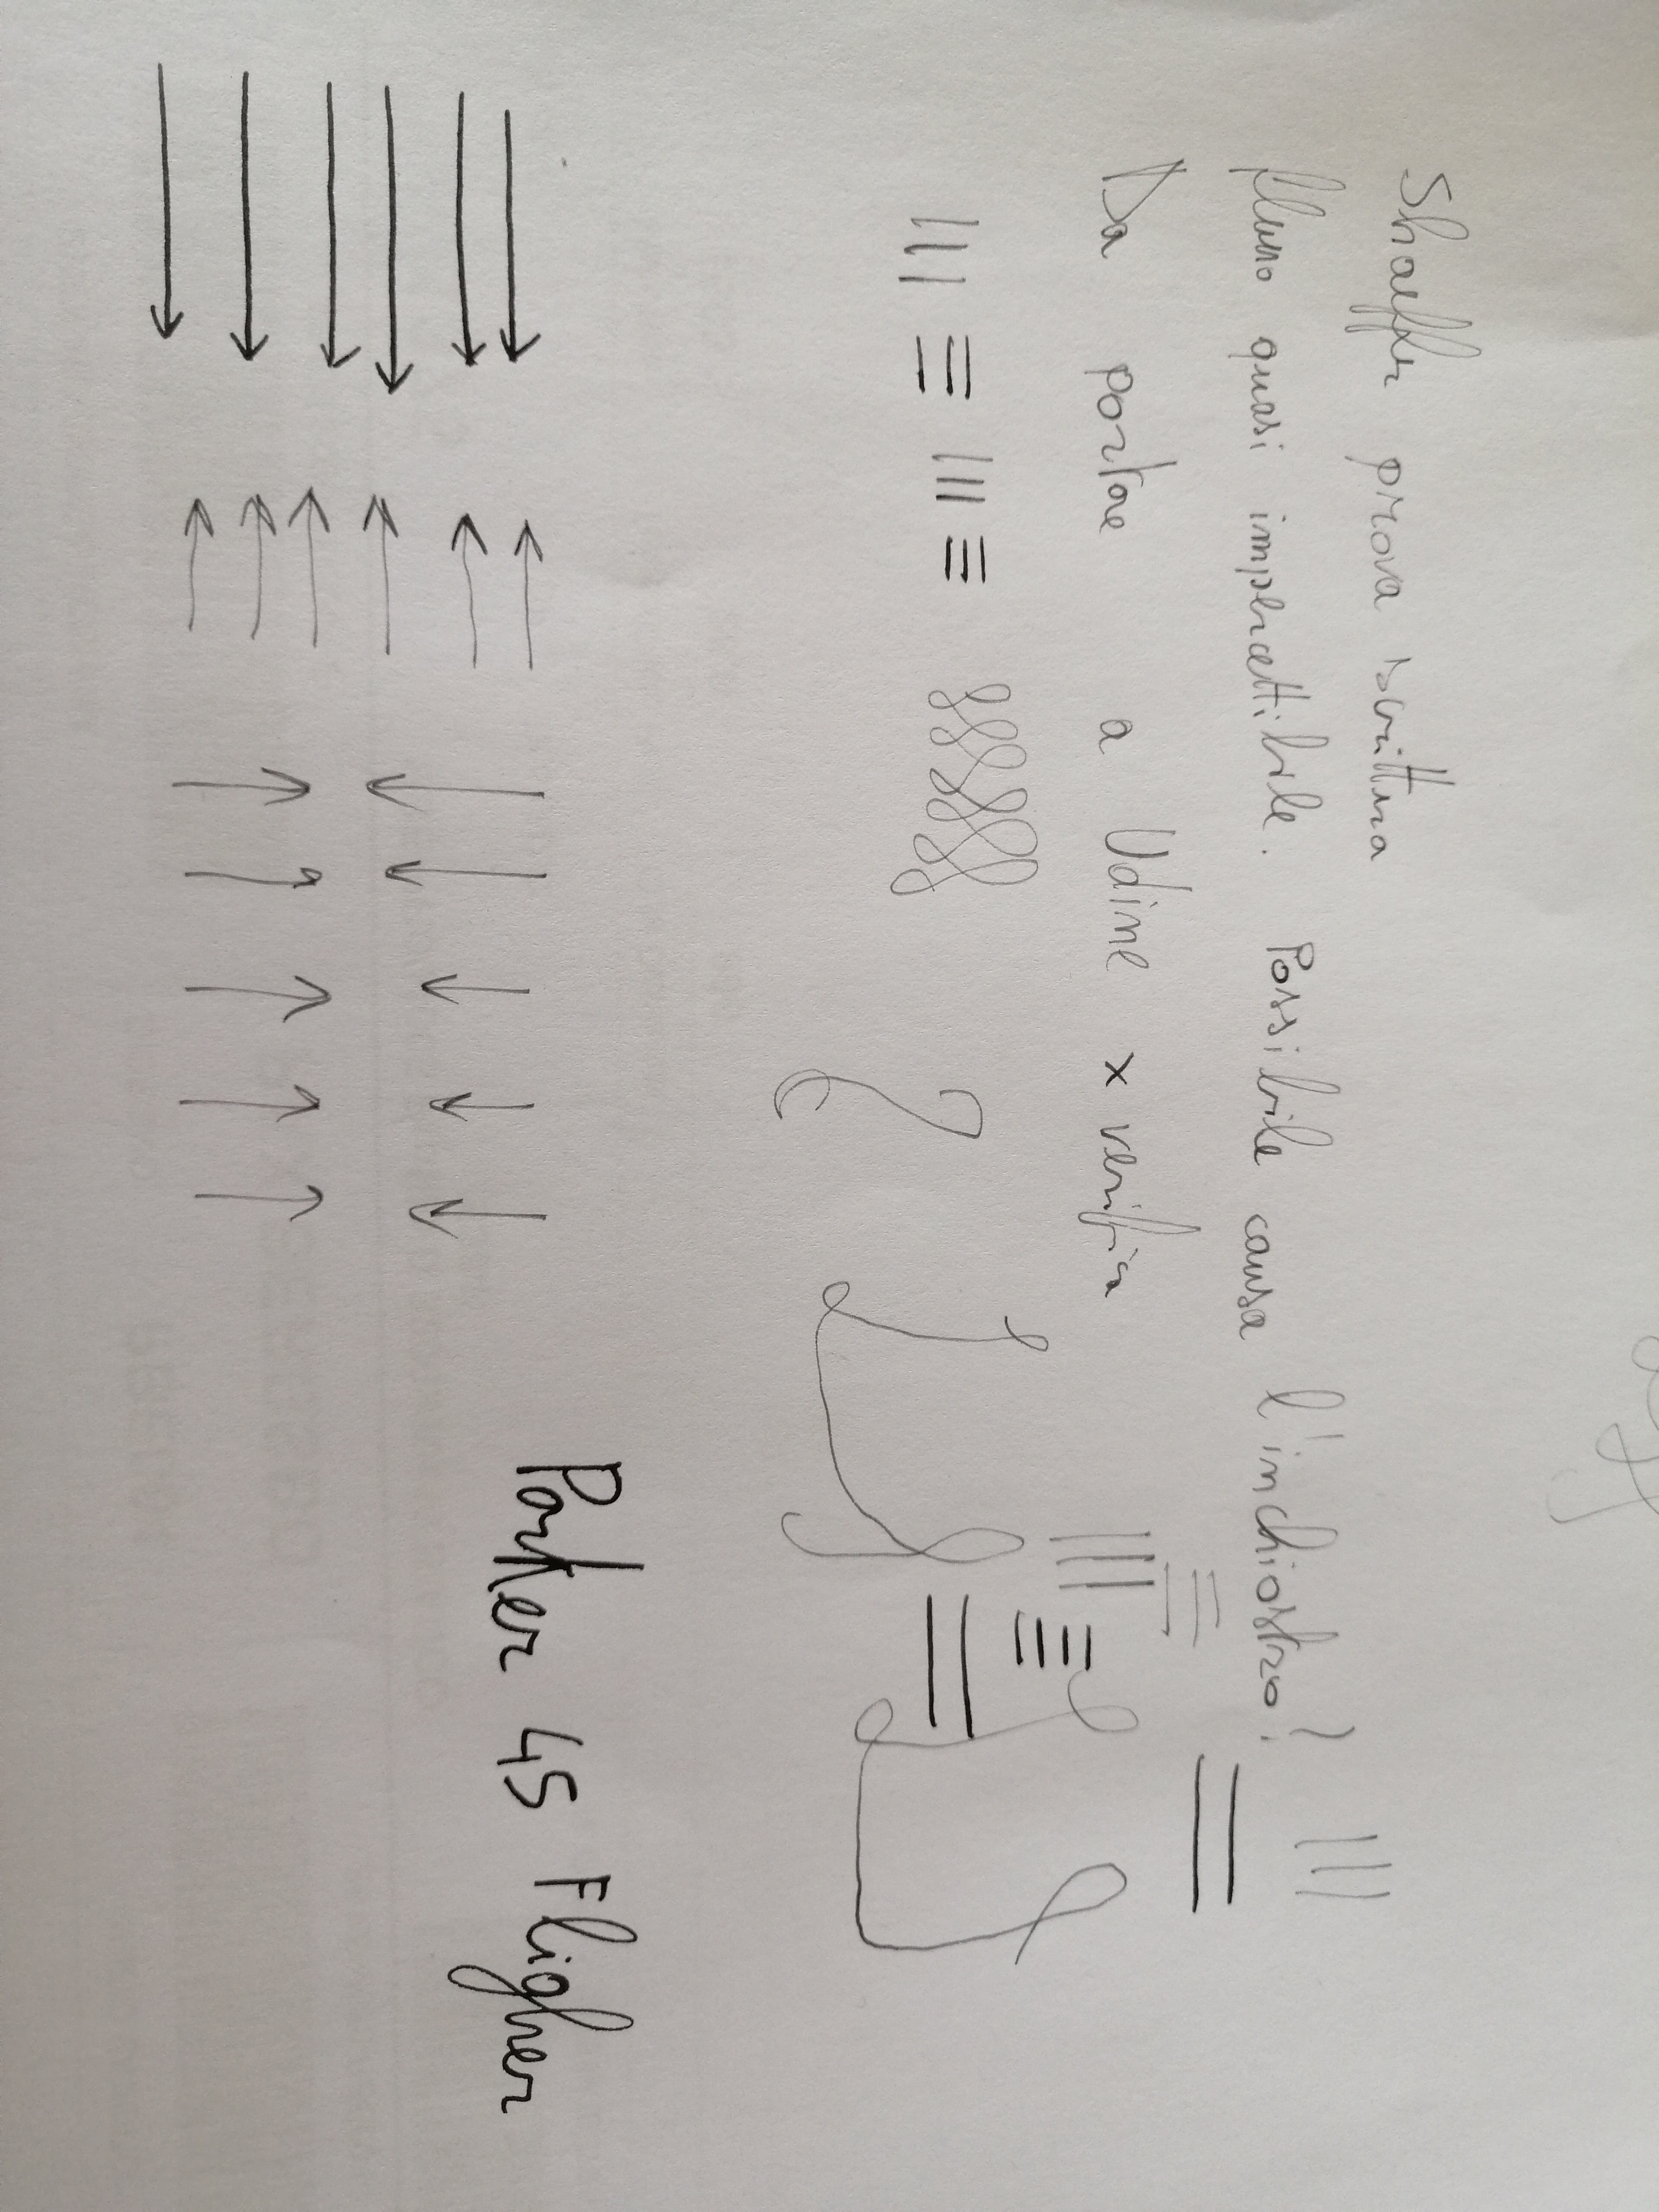 Shaeffer prova scrittura
flusso quasi impercettibile. Possibile causa l'inchiostro?
Da portare a Udine x verifica
Parker 45 Fligher